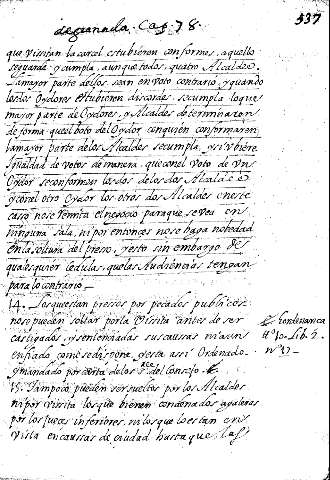 de granada. Cap. 78.
537
que visitan la carcel estubieren conformes, aquello
se guarde, y cumpla, aunque todos quatro Alcaldes,
o mayor parte dellos sean en voto contrario, y quando
los dos Oydores estubieren discordes se cumpla lo que
mayor parte de Oydores, y Alcaldes determinaren
de forma que el boto del Oydor con quien conformaren
la mayor parte de los Alcaldes se cumpla, y si ubiere
Igualdad de votos de manera, que con el voto de Un
Oydor se conformen los dos de los dos Alcaldes
y con el otro Oydor los otros dos Alcaldes en este
caso no se Permita el negocio para que se vea en
ninguna sala, ni por entonces no se haga novedad
en la soltura del preso, y esto sin embargo de
qualesquier cedulas, que las Audiencias tengan
para lo contrario_
14. Los que estan presos por pecados publicos
no se pueden soltar por la Visita antes de ser
castigados, y sentenciadas sus causas
como se dispone, y esta assi Ordenado
y mandado por carta de los S.res del Consejo.
Lib. 2.
15. Tampoco pueden ser sueltos por los Alcaldes
ni por visita los que bienen condenados a galeras
por los Jueces inferiores, ni los que lo estan en
vista en causas de ciudad hasta que las